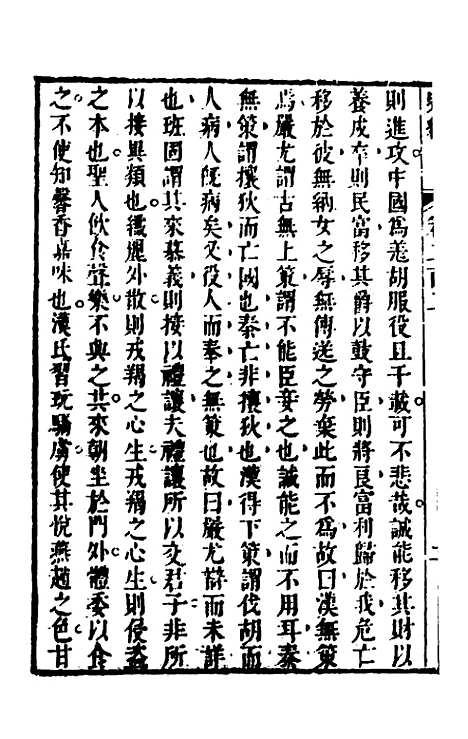 則進攻中國為羗胡服役且千載可不悲哉誠能移其財以
養戍卒則民富移其爵以鼓守臣則將良富利歸於我危亡
移於彼無納女之辱無傳送之勞棄此而不為故曰漢無策
焉嚴尤謂古無上策謂不能臣妾之也誠能之而不用耳秦
無策謂攘狄而亡國也秦亡非攘狄也漢得下策謂伐胡而
人病人旣病矣又役人而奉之無策也故曰嚴尤辯而未詳
也班固謂其來慕義則接以禮讓夫禮讓所以交君子非所
以接異類也纎麗外散則戎羯之心生戎羯之心生則侵盗
之本也聖人飲食聲樂不與之共來朝坐於門外體委以食
之不使知馨香嘉味也漢氏習玩驕虜使其悅燕趙之色甘